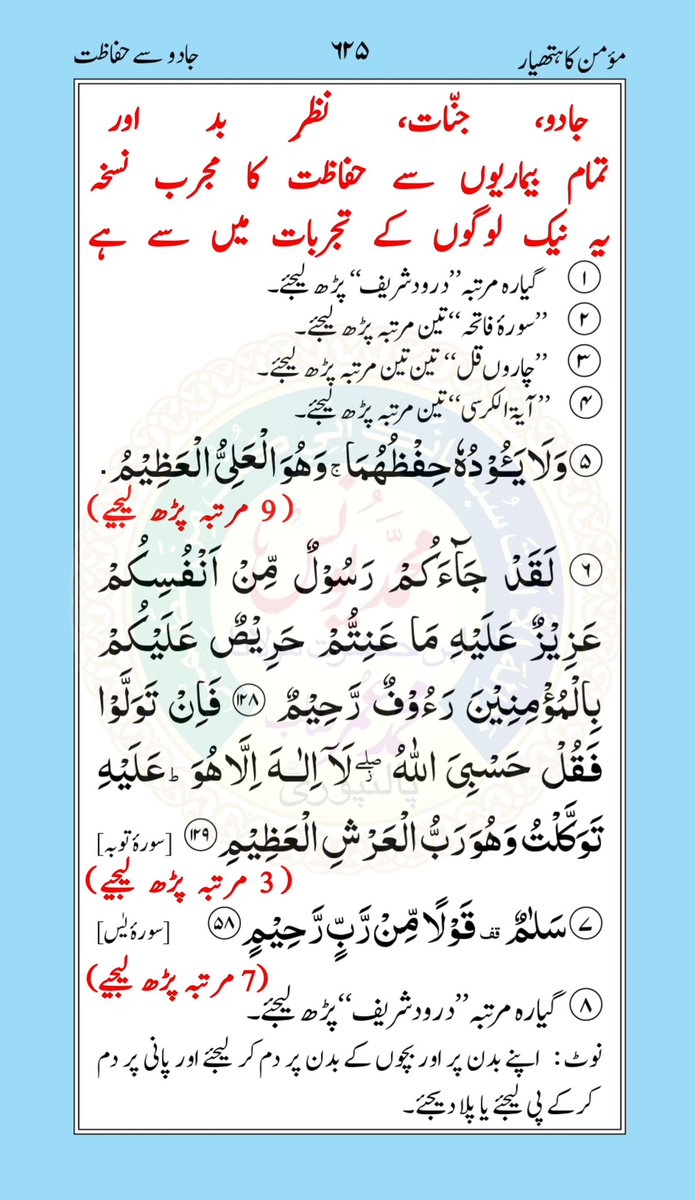 مؤمن کا ہتھیار ۶۲۵ جادو سے حفاظت
جادو، جنّات، نظرِ بد اور
تمام بیماریوں سے حفاظت کا مجرب نسخہ
یہ نیک لوگوں کے تجربات میں سے ہے
۱ گیارہ مرتبہ ’’درود شریف‘‘ پڑھ لیجئے۔
۲ ’’سورۂ فاتحہ‘‘ تین مرتبہ پڑھ لیجئے۔
۳ ’’چاروں قل‘‘ تین تین مرتبہ پڑھ لیجئے۔
۴ ’’آیۃ الکرسی‘‘ تین مرتبہ پڑھ لیجئے۔
۵ وَلَا يَـُٔوۡدُهٗ حِفۡظُهُمَا ۚ وَهُوَ الۡعَلِىُّ الۡعَظِيۡمُ.
(9 مرتبہ پڑھ لیجیے)
۶ لَقَدۡ جَآءَكُمۡ رَسُوۡلٌ مِّنۡ اَنۡفُسِكُمۡ
عَزِيۡزٌ عَلَيۡهِ مَا عَنِتُّمۡ حَرِيۡصٌ عَلَيۡكُمۡ
بِالۡمُؤۡمِنِيۡنَ رَءُوۡفٌ رَّحِيۡمٌ ۱۲۸ فَاِنۡ تَوَلَّوۡا
فَقُلۡ حَسۡبِىَ اللّٰهُ ۖ لَاۤ اِلٰهَ اِلَّا هُوَ ؕ عَلَيۡهِ
تَوَكَّلۡتُ وَهُوَ رَبُّ الۡعَرۡشِ الۡعَظِيۡمِ ۱۲۹ [سورۂ توبہ]
(3 مرتبہ پڑھ لیجیے)
۷ سَلٰمٌ قف قَوۡلًا مِّنۡ رَّبٍّ رَّحِيۡمٍ ۵۸ [سورۂ یٰس]
(7 مرتبہ پڑھ لیجیے)
۸ گیارہ مرتبہ ’’درود شریف‘‘ پڑھ لیجئے۔
نوٹ: اپنے بدن پر اور بچوں کے بدن پر دم کر لیجئے اور پانی پر دم
کر کے پی لیجئے یا پلا دیجئے۔